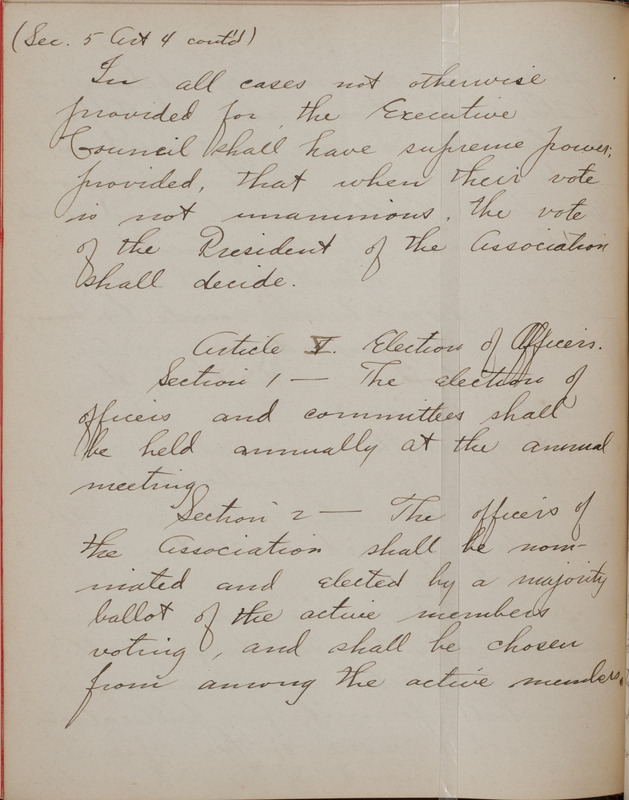 (Sec. 5 Art 4 cont'd)
In all cases not otherwise
provided for, the Executive
Council shall have supreme power;
provided, that when their vote
is not unanimous, the vote
of the President of the Association
shall decide.
Article V. Election of Officers.
Section 1 — The election of
officers and committees shall
be held annually at the annual
meeting
Section 2 — The officers of
the Association shall be nom-
inated and elected by a majority
ballot of the active members
voting, and shall be chosen
from among the active members.